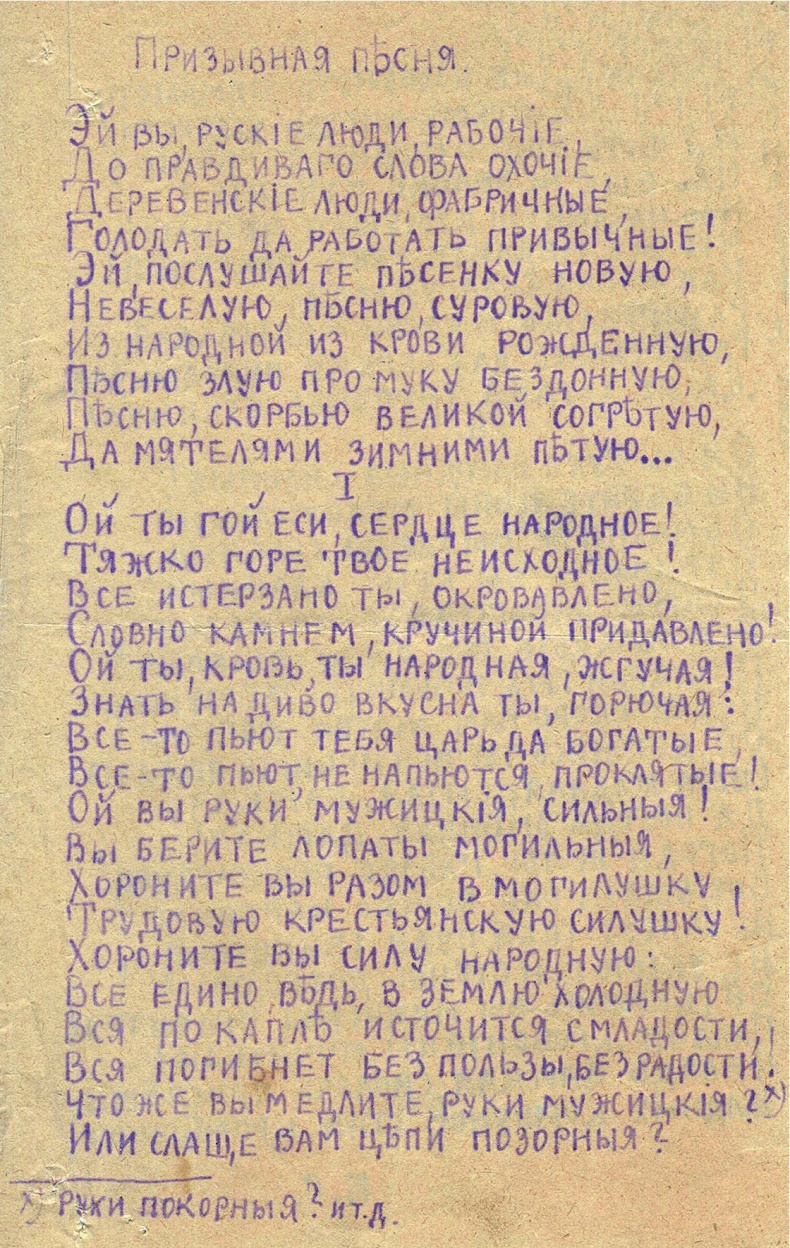 Призывная пѣсня.
Эй вы, рускіе люди, рабочіе,
До правдиваго слова охочіе,
Деревенскіе люди, фабричные,
Голодать да работать привычные!
Эй, послушайте пѣсенку новую,
Невеселую, пѣсню, суровую,
Из народной из крови рожденную,
Пѣсню злую про муку бездонную,
Пѣсню, скорбью великой согрѣтую,
Да мятелями зимними пѣтую...
I
Ой ты гой еси, сердце народное!
Тяжко горе твое неисходное!
Все истерзано ты, окровавлено,
Словно камнем, кручиной придавлено!
Ой ты, кровь, ты народная, жгучая!
Знать на диво вкусна ты, горючая:
Все-то пьют тебя царь да богатые,
Все-то пьют, не напьются, проклятые!
Ой вы руки мужицкія, сильныя!
Вы берите лопаты могильныя,
Хороните вы разом в могилушку
Трудовую крестьянскую силушку!
Хороните вы силу народную:
Все едино, вѣдь, в землю холодную
Вся по каплѣ источится смладости,
Вся погибнет без пользы, без радости!
Что же вы медлите, руки мужицкія? х)
Или слаще вам цѣпи позорныя?
х) Руки покорныя? и т.д.